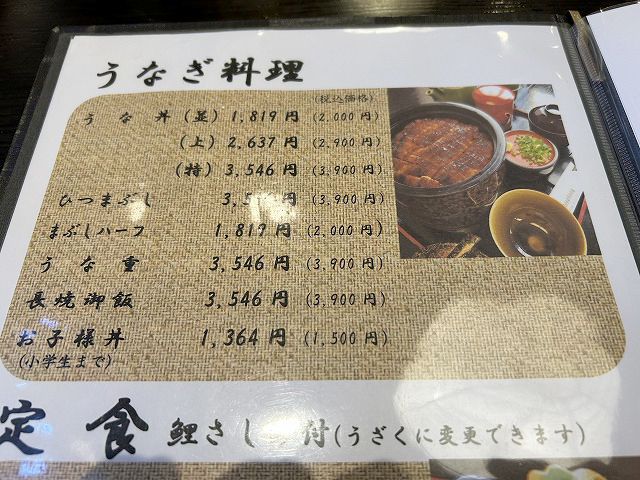 うなぎ料理
(税込価格)
うな丼 (並) 1,819円 (2,000円)
(上) 2,637円 (2,900円)
(特) 3,546円 (3,900円)
ひつまぶし 3,5 円 (3,900円)
まぶしハーフ 1,819円 (2,000円)
うな重 3,546円 (3,900円)
長焼御飯 3,546円 (3,900円)
お子様丼 1,364円 (1,500円)
(小学生まで)
定食 鯉さし 付(うざくに変更できます)